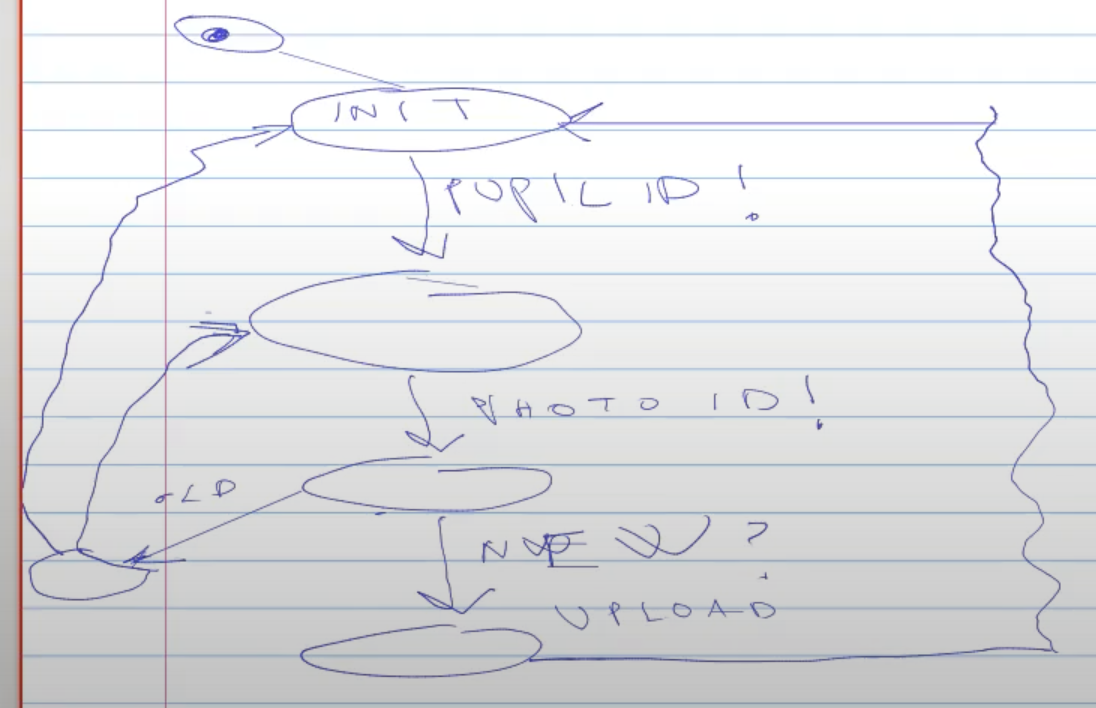 INIT
PUPIL ID!
PHOTO ID!
OLD
NEW?
UPLOAD